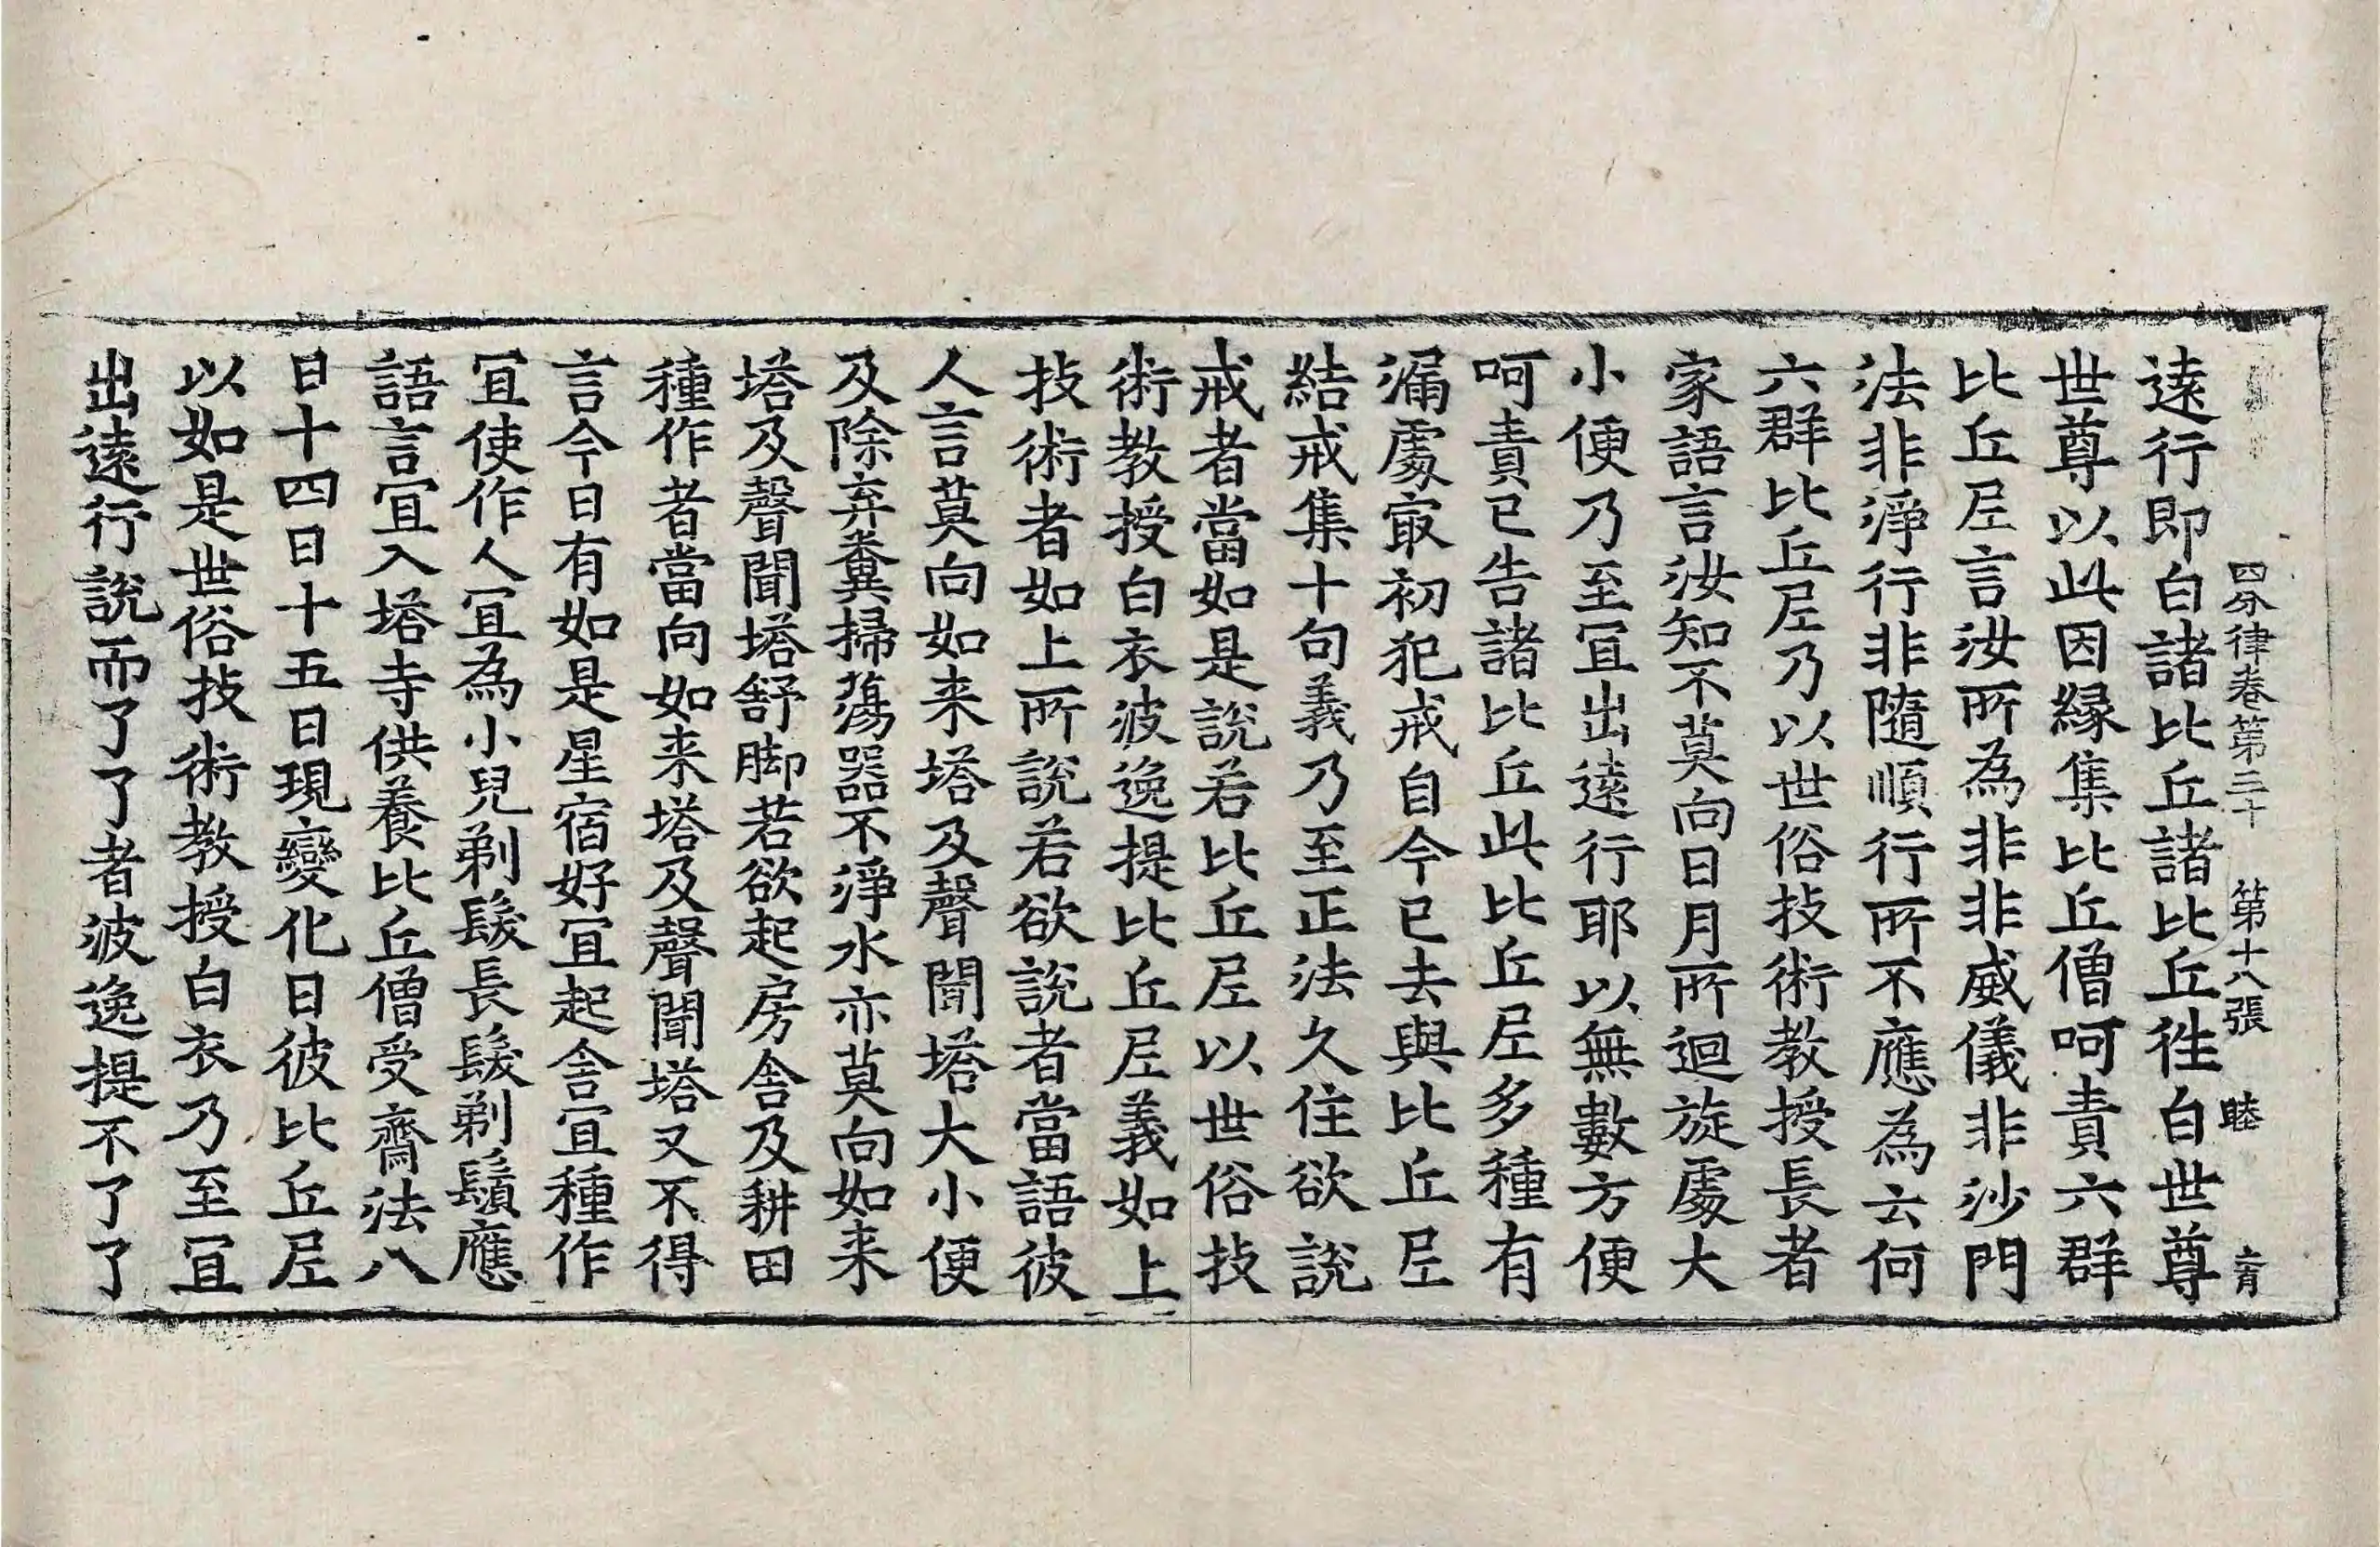 四分律卷第三十 第十八張 睦
遠行即白諸比丘諸比丘徃白世尊
世尊以此因緣集比丘僧呵責六群
比丘尼言汝所為非非威儀非沙門
法非淨行非隨順行所不應為云何
六群比丘尼乃以世俗技術教授長者
家語言汝知不莫向日月所迴旋處大
小便乃至冝出遠行耶以無數方便
呵責已告諸比丘此比丘尼多種有
漏處㝡初犯戒自今已去與比丘尼
結戒集十句義乃至正法久住欲說
戒者當如是說若比丘尼以世俗技
術教授白衣波逸提比丘尼義如上
技術者如上所說若欲說者當語彼
人言莫向如来塔及聲聞塔大小便
及除弃糞掃蕩器不淨水亦莫向如来
塔及聲聞塔舒脚若欲起房舍及耕田
種作者當向如来塔及聲聞塔又不得
言今日有如是星宿好冝起舍冝種作
冝使作人冝為小兒剃髮長髮剃鬚應
語言冝入塔寺供養比丘僧受齋法八
日十四日十五日現變化日彼比丘尼
以如是世俗技術教授白衣乃至冝
出遠行說而了了者波逸提不了了